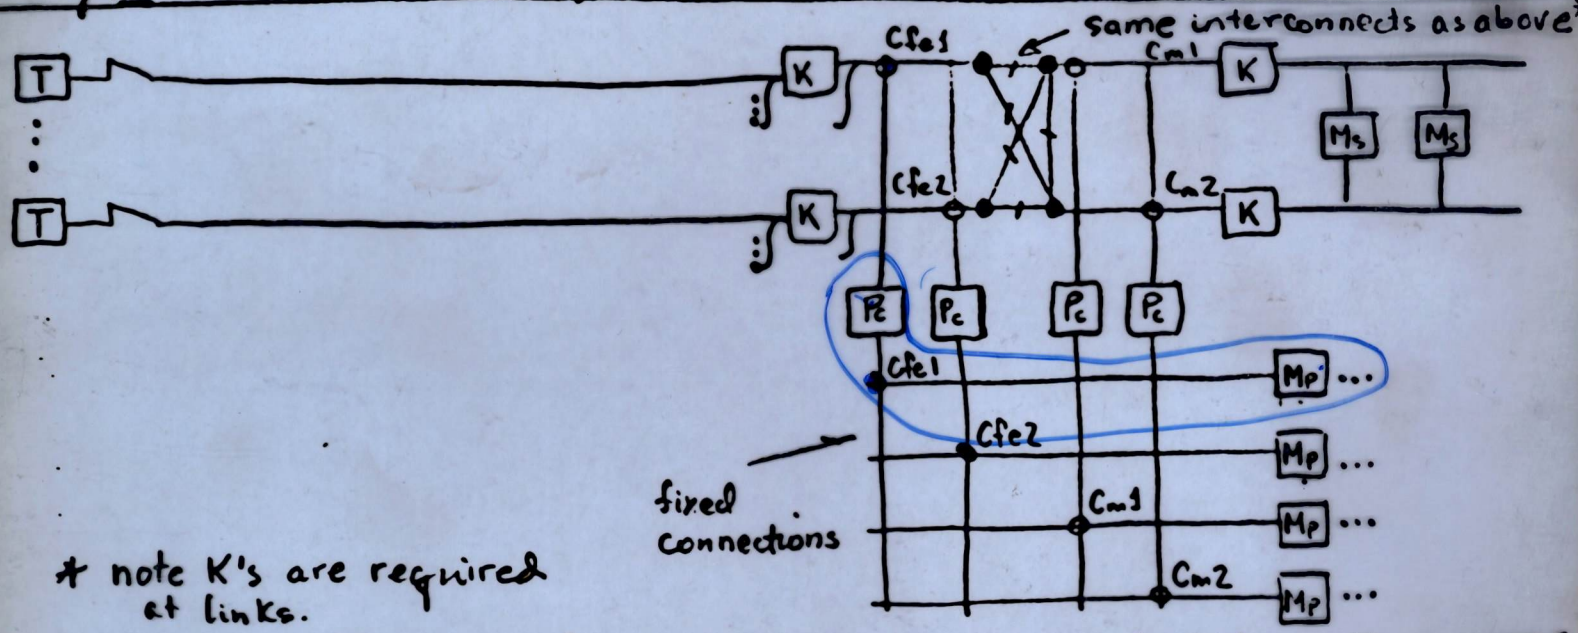 same interconnects as above*
T K Cfe1 Cm1 K
Ms Ms
T K Cfe2 Cm2 K
Pc Pc Pc Pc
Cfe1 Mp ...
Cfe2 Mp ...
fixed
connections
Cm1 Mp ...
Cm2 Mp ...
* note K's are required
at links.